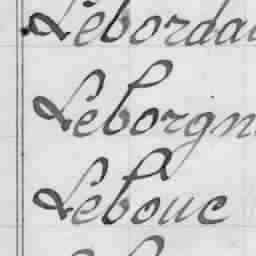 Lebordai
Leborgn
Lebouc